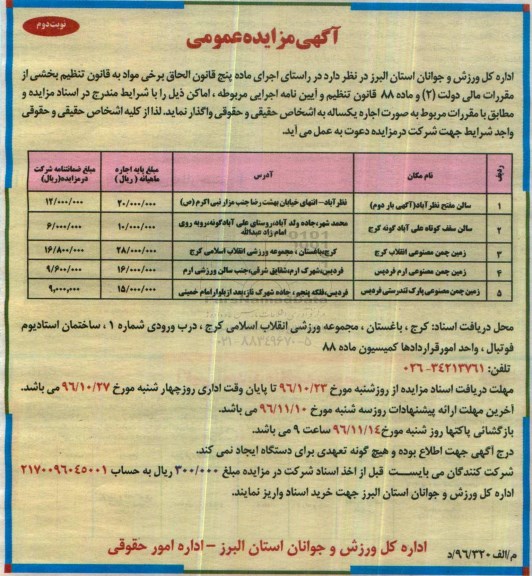 نوبت دوم
آگهی مزایده عمومی
اداره کل ورزش و جوانان استان البرز در نظر دارد در راستای اجرای ماده پنج قانون الحاق برخی مواد به قانون تنظیم بخشی از
مقررات مالی دولت (۲) و ماده ۸۸ قانون تنظیم و آیین نامه اجرایی مربوطه ، اماکن ذیل را با شرایط مندرج در اسناد مزایده و
مطابق با مقررات مربوط به صورت اجاره یکساله به اشخاص حقیقی و حقوقی واگذار نماید. لذا از کلیه اشخاص حقیقی و حقوقی
واجد شرایط جهت شرکت در مزایده دعوت به عمل می آید.
ردیف | نام مکان | آدرس | مبلغ پایه اجاره ماهیانه ( ریال ) | مبلغ ضمانتنامه شرکت در مزایده(ریال)
۱ | سالن مفتح نظرآباد(آگهی بار دوم) | نظرآباد- انتهای خیابان بهشت رضا جنب مزار نبی اکرم (ص) | ۲۰/۰۰۰/۰۰۰ | ۱۲/۰۰۰/۰۰۰
۲ | سالن سقف کوتاه علی آباد گونه کرج | محمد شهر،جاده ولد آباد،روستای علی آباد گونه،روبه روی امام زاد عبدالله | ۱۰/۰۰۰/۰۰۰ | ۶/۰۰۰/۰۰۰
۳ | زمین چمن مصنوعی انقلاب کرج | کرج،باغستان ، مجموعه ورزشی انقلاب اسلامی کرج | ۲۸/۰۰۰/۰۰۰ | ۱۶/۸۰۰/۰۰۰
۴ | زمین چمن مصنوعی ارم فردیس | فردیس،شهرک ارم،شقایق شرقی،جنب سالن ورزشی ارم | ۱۶/۰۰۰/۰۰۰ | ۹/۶۰۰/۰۰۰
۵ | زمین چمن مصنوعی پارک تندرستی فردیس | فردیس،فلکه پنجم، جاده شهرک ناز،بعد ازبلوار امام خمینی | ۱۵/۰۰۰/۰۰۰ | ۹،۰۰۰،۰۰۰
محل دریافت اسناد: کرج ، باغستان ، مجموعه ورزشی انقلاب اسلامی کرج ، درب ورودی شماره ۱ ، ساختمان استادیوم
فوتبال ، واحد امور قراردادها کمیسیون ماده ۸۸
تلفن: ۳۴۲۱۳۷۶۱-۰۲۶
مهلت دریافت اسناد مزایده از روز شنبه مورخ ۹۶/۱۰/۲۳ تا پایان وقت اداری روز چهار شنبه مورخ ۹۶/۱۰/۲۷ می باشد.
آخرین مهلت ارائه پیشنهادات روز سه شنبه مورخ ۹۶/۱۱/۱۰ می باشد.
بازگشائی پاکتها روز شنبه مورخ ۹۶/۱۱/۱۴ ساعت ۹ می باشد.
درج آگهی جهت اطلاع بوده و هیچ گونه تعهدی برای دستگاه ایجاد نمی کند.
شرکت کنندگان می بایست قبل از اخذ اسناد شرکت در مزایده مبلغ ۳۰۰/۰۰۰ ریال به حساب ۲۱۷۰۰۹۶۰۴۵۰۰۱
اداره کل ورزش و جوانان استان البرز جهت خرید اسناد واریز نمایند.
اداره کل ورزش و جوانان استان البرز - اداره امور حقوقی
م/الف ۹۶/۳۲۰/د